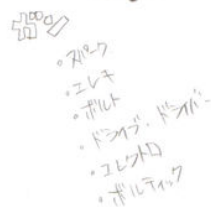 ガジン
・スパーク
・エレキ
・ボルト
・ドライブ、ドライバー
・エレクトロ
・ボルティック